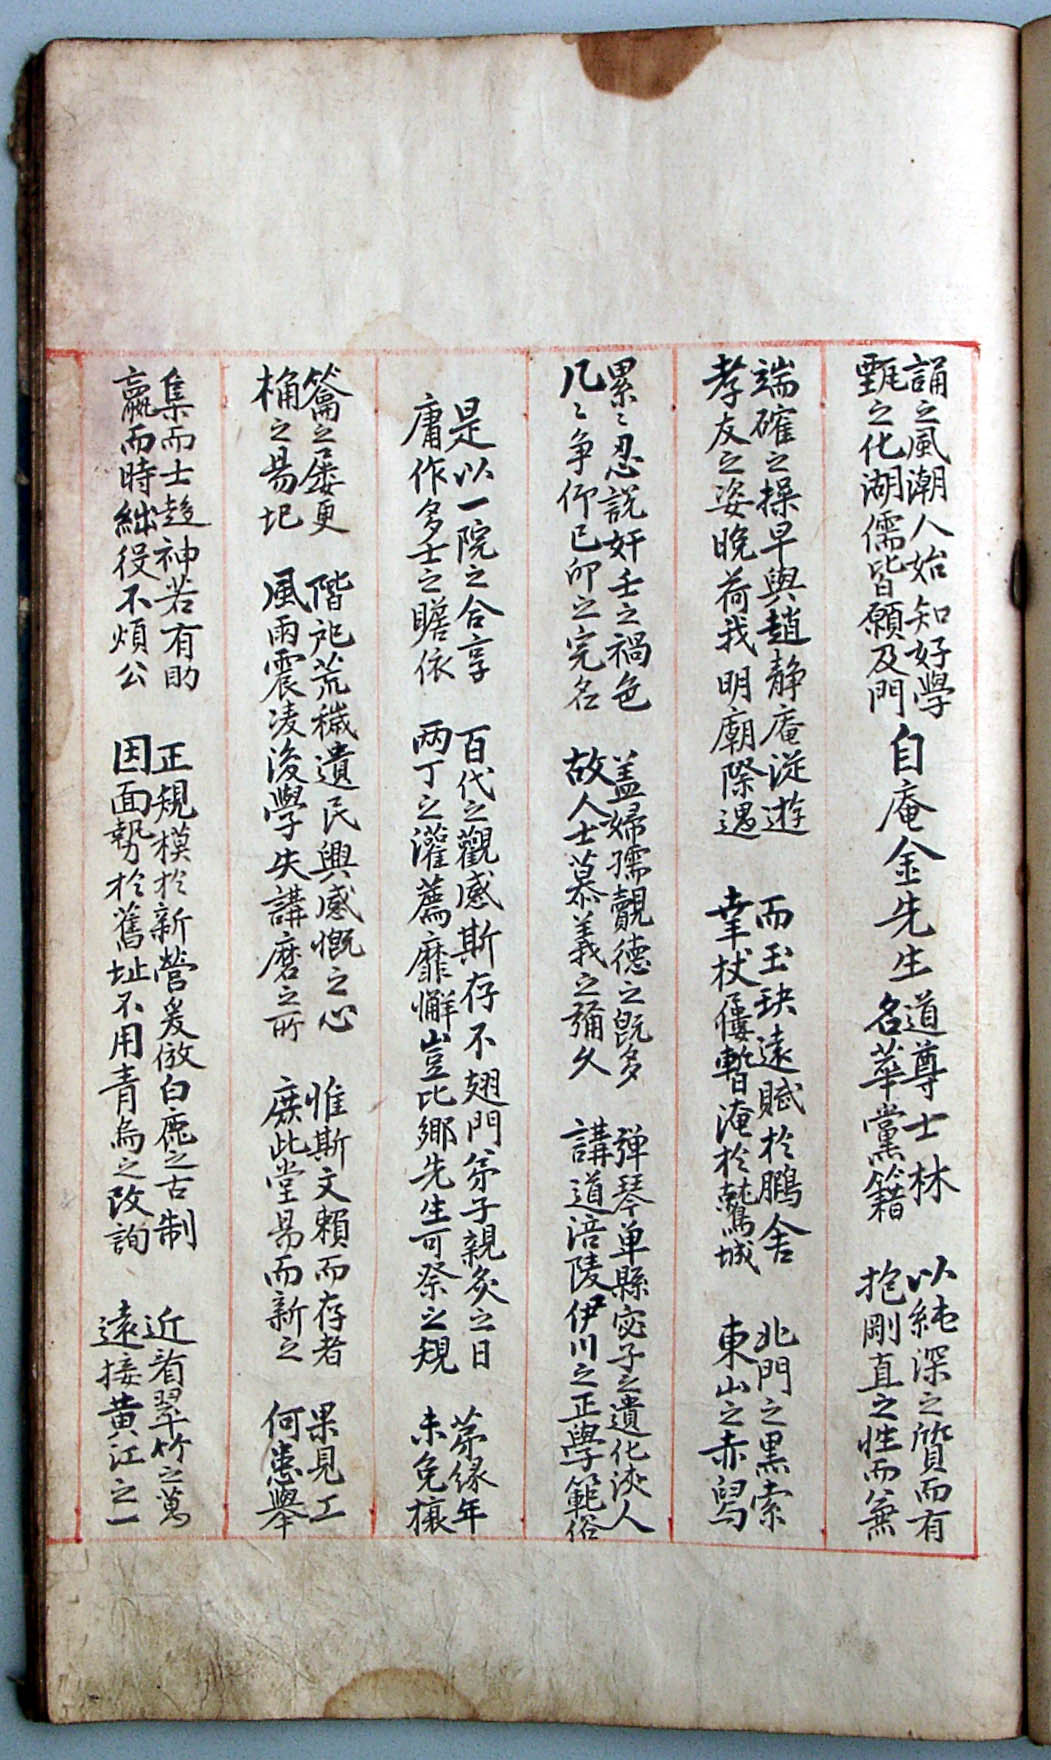 誦之風潮人始知好學
甄之化湖儒皆願及門
自庵金先生
道尊士林
名華黨籍
以純深之質而有
抱剛直之性而兼
端確之操早與趙静庵從遊
孝友之姿晩荷我明廟際遇
而玉玦遠賦於鵬舍
幸杖屨暫淹於鷲城
北門之黑索
東山之赤舃
累〻忍說奸壬之禍色
凡〻争仰已卯之完名
盖婦孺覿德之旣多
故人士慕義之彌久
弹琴单縣宓子之遺化浹人
講道涪陵伊川之正學範俗
是以一院之合享
庸作多士之瞻依
百代之觀感斯存不翅門弟子親炙之日
两丁之灌薦靡懈豈比鄉先生可祭之規
苐縁年
未免榱
籥之屡更
桷之易圮
階戺荒穢遺民興感慨之心
風雨震凌後學失講磨之所
惟斯文賴而存者
庶此堂易而新之
果見工
何患擧
集而士趍神若有助
贏而時絀役不煩公
正規模於新營爰倣白鹿之古制
因面勢於舊址不用青烏之改詢
近省翠竹之萬
遠接黄江之一